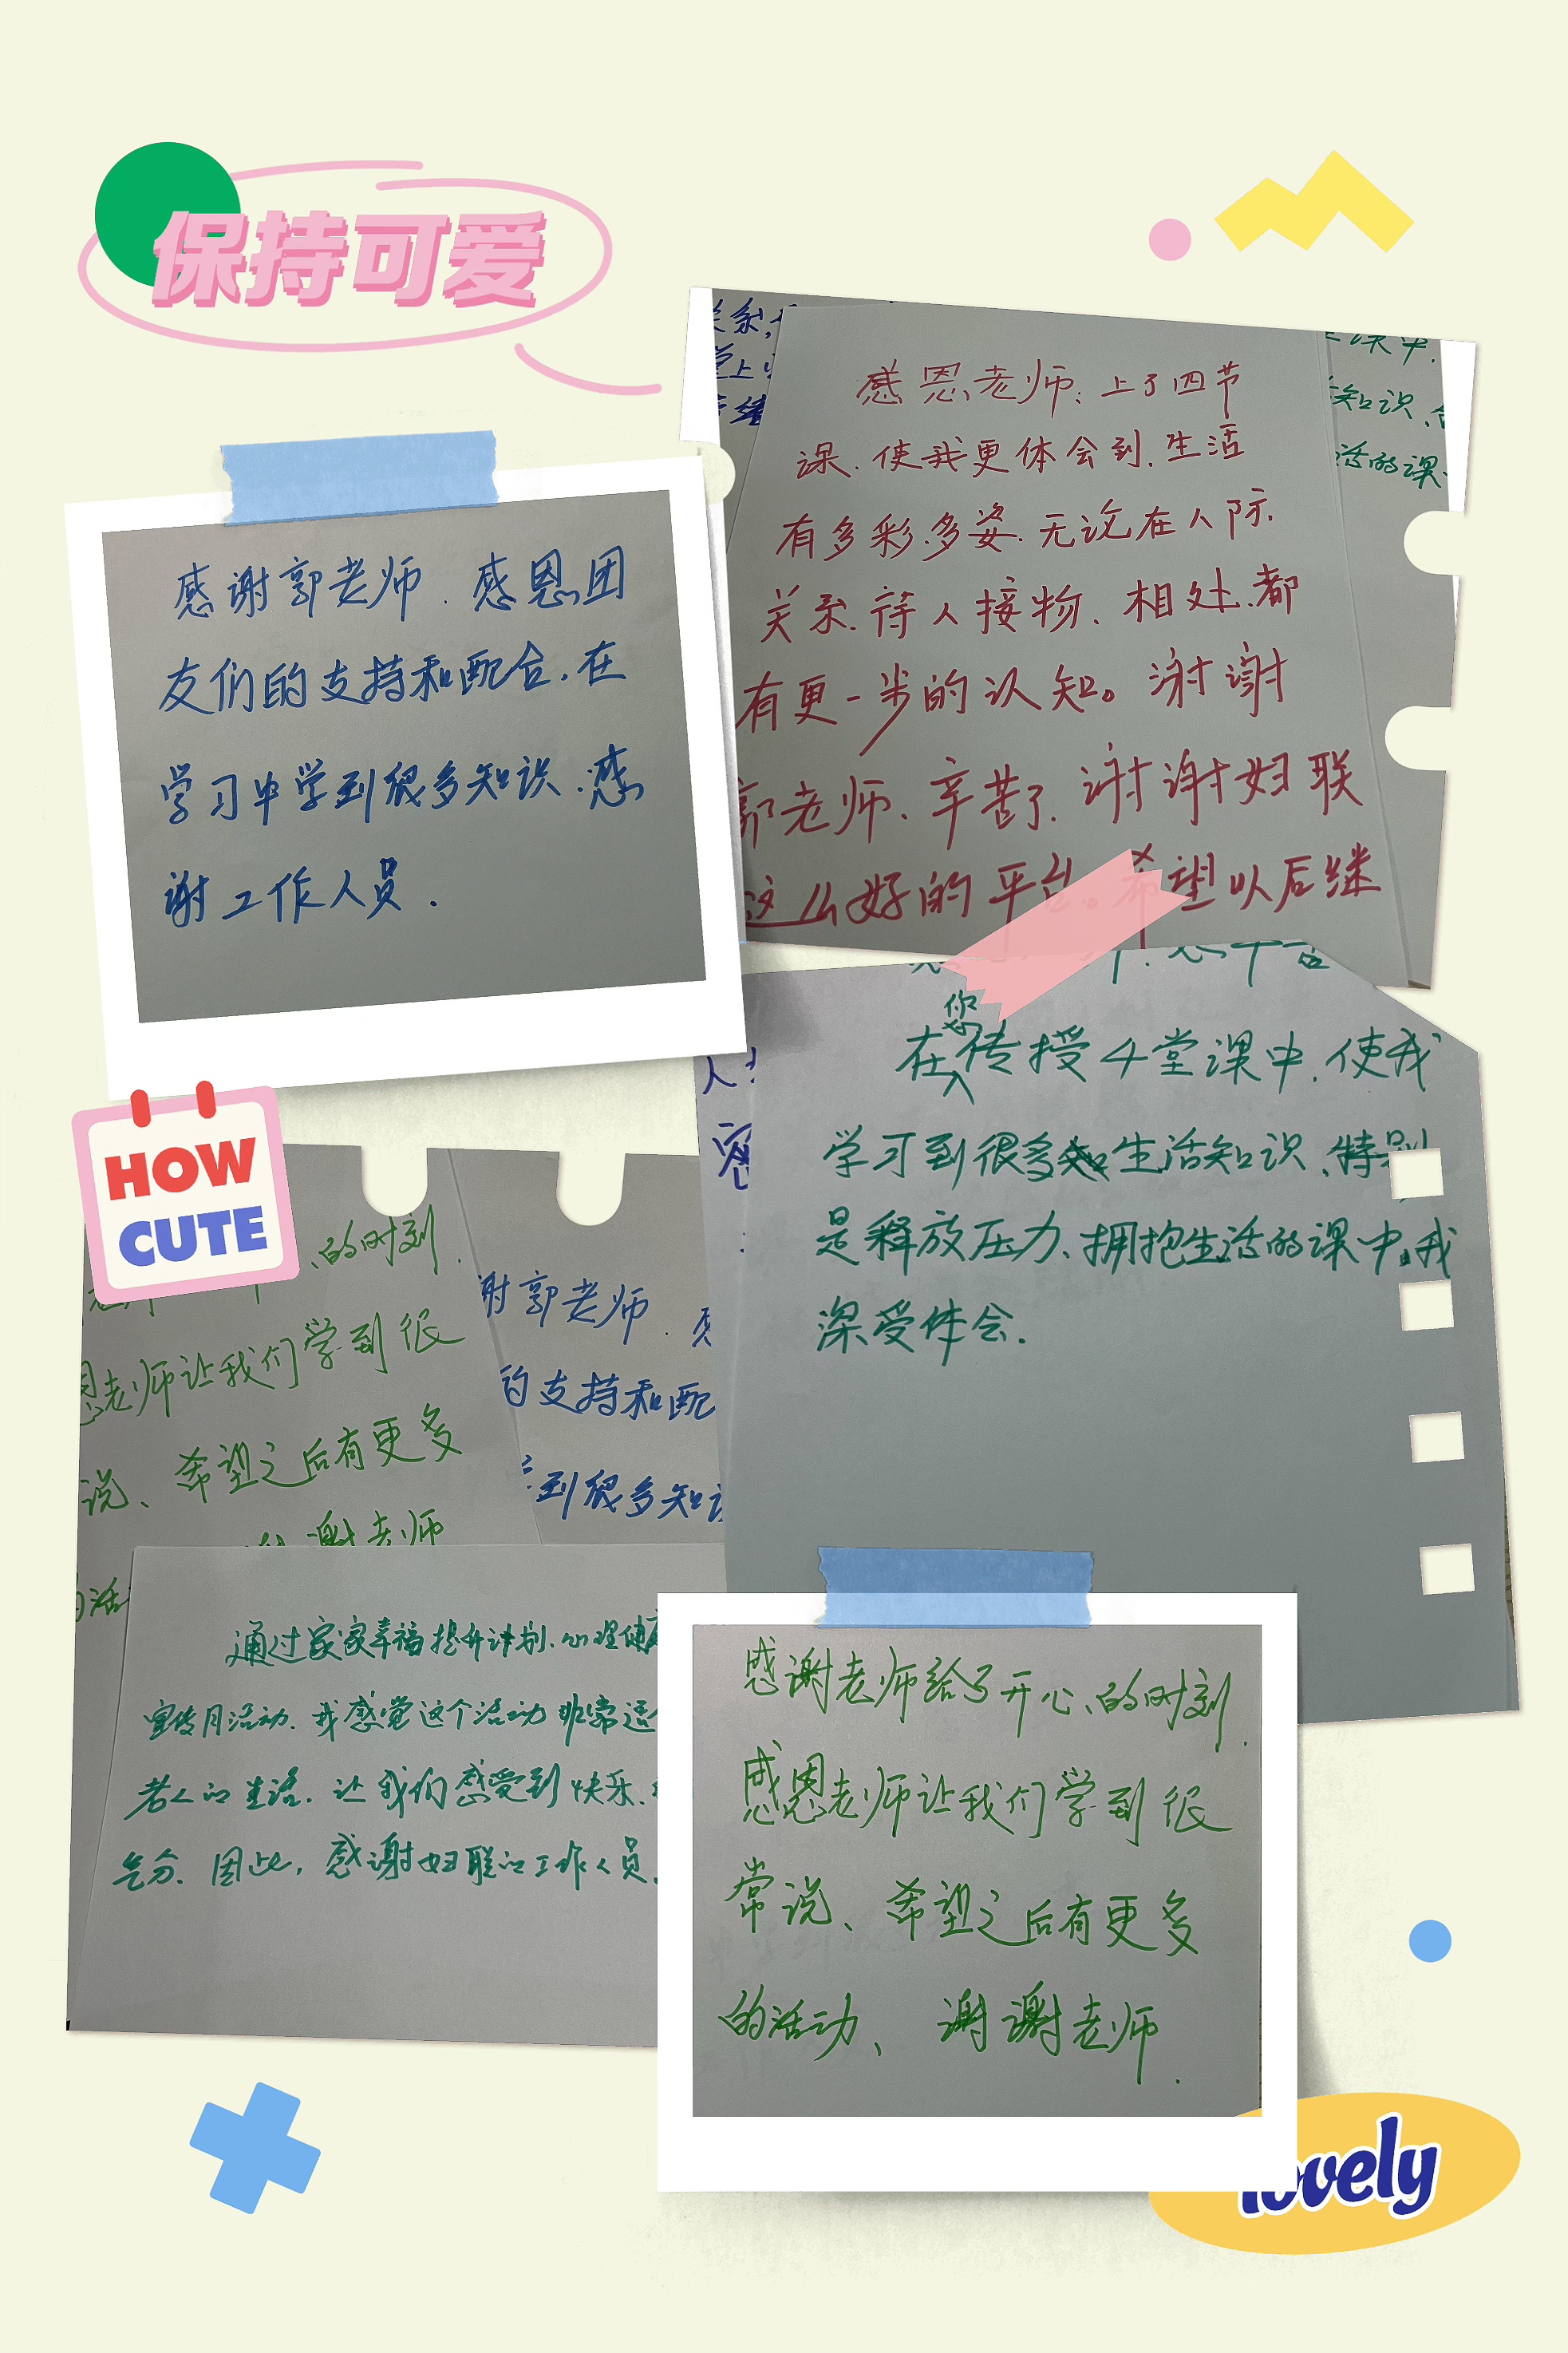 保持可爱
感谢郭老师.感恩团
友们的支持和配合.在
学习中学到很多知识.感
谢工作人员.
感恩老师:上了四节
课.使我更体会到.生活
有多彩.多姿.无论在人际
关系.待人接物、相处.都
有更一步的认知。谢谢
郭老师、辛苦了.谢谢妇联
这么好的平台。希望以后继
关系,
知识,
活的课.
在您传授4堂课中.使我
学习到很多生活知识、特别
是释放压力、拥抱生活的课中,我
深受体会.
HOW
CUTE
的时刻.
恩老师让我们学到很
说、希望之后有更多
谢老师
谢郭老师.感
的支持和配
到很多知识
通过家家幸福提升计划.心理健康
宣传月活动.我感觉这个活动非常适合
老人的生活.让我们感受到快乐.
气分.因此,感谢妇联的工作人员.
感谢老师给了开心的时刻.
感恩老师让我们学到很
常说、希望之后有更多
的活动、谢谢老师.
lovely